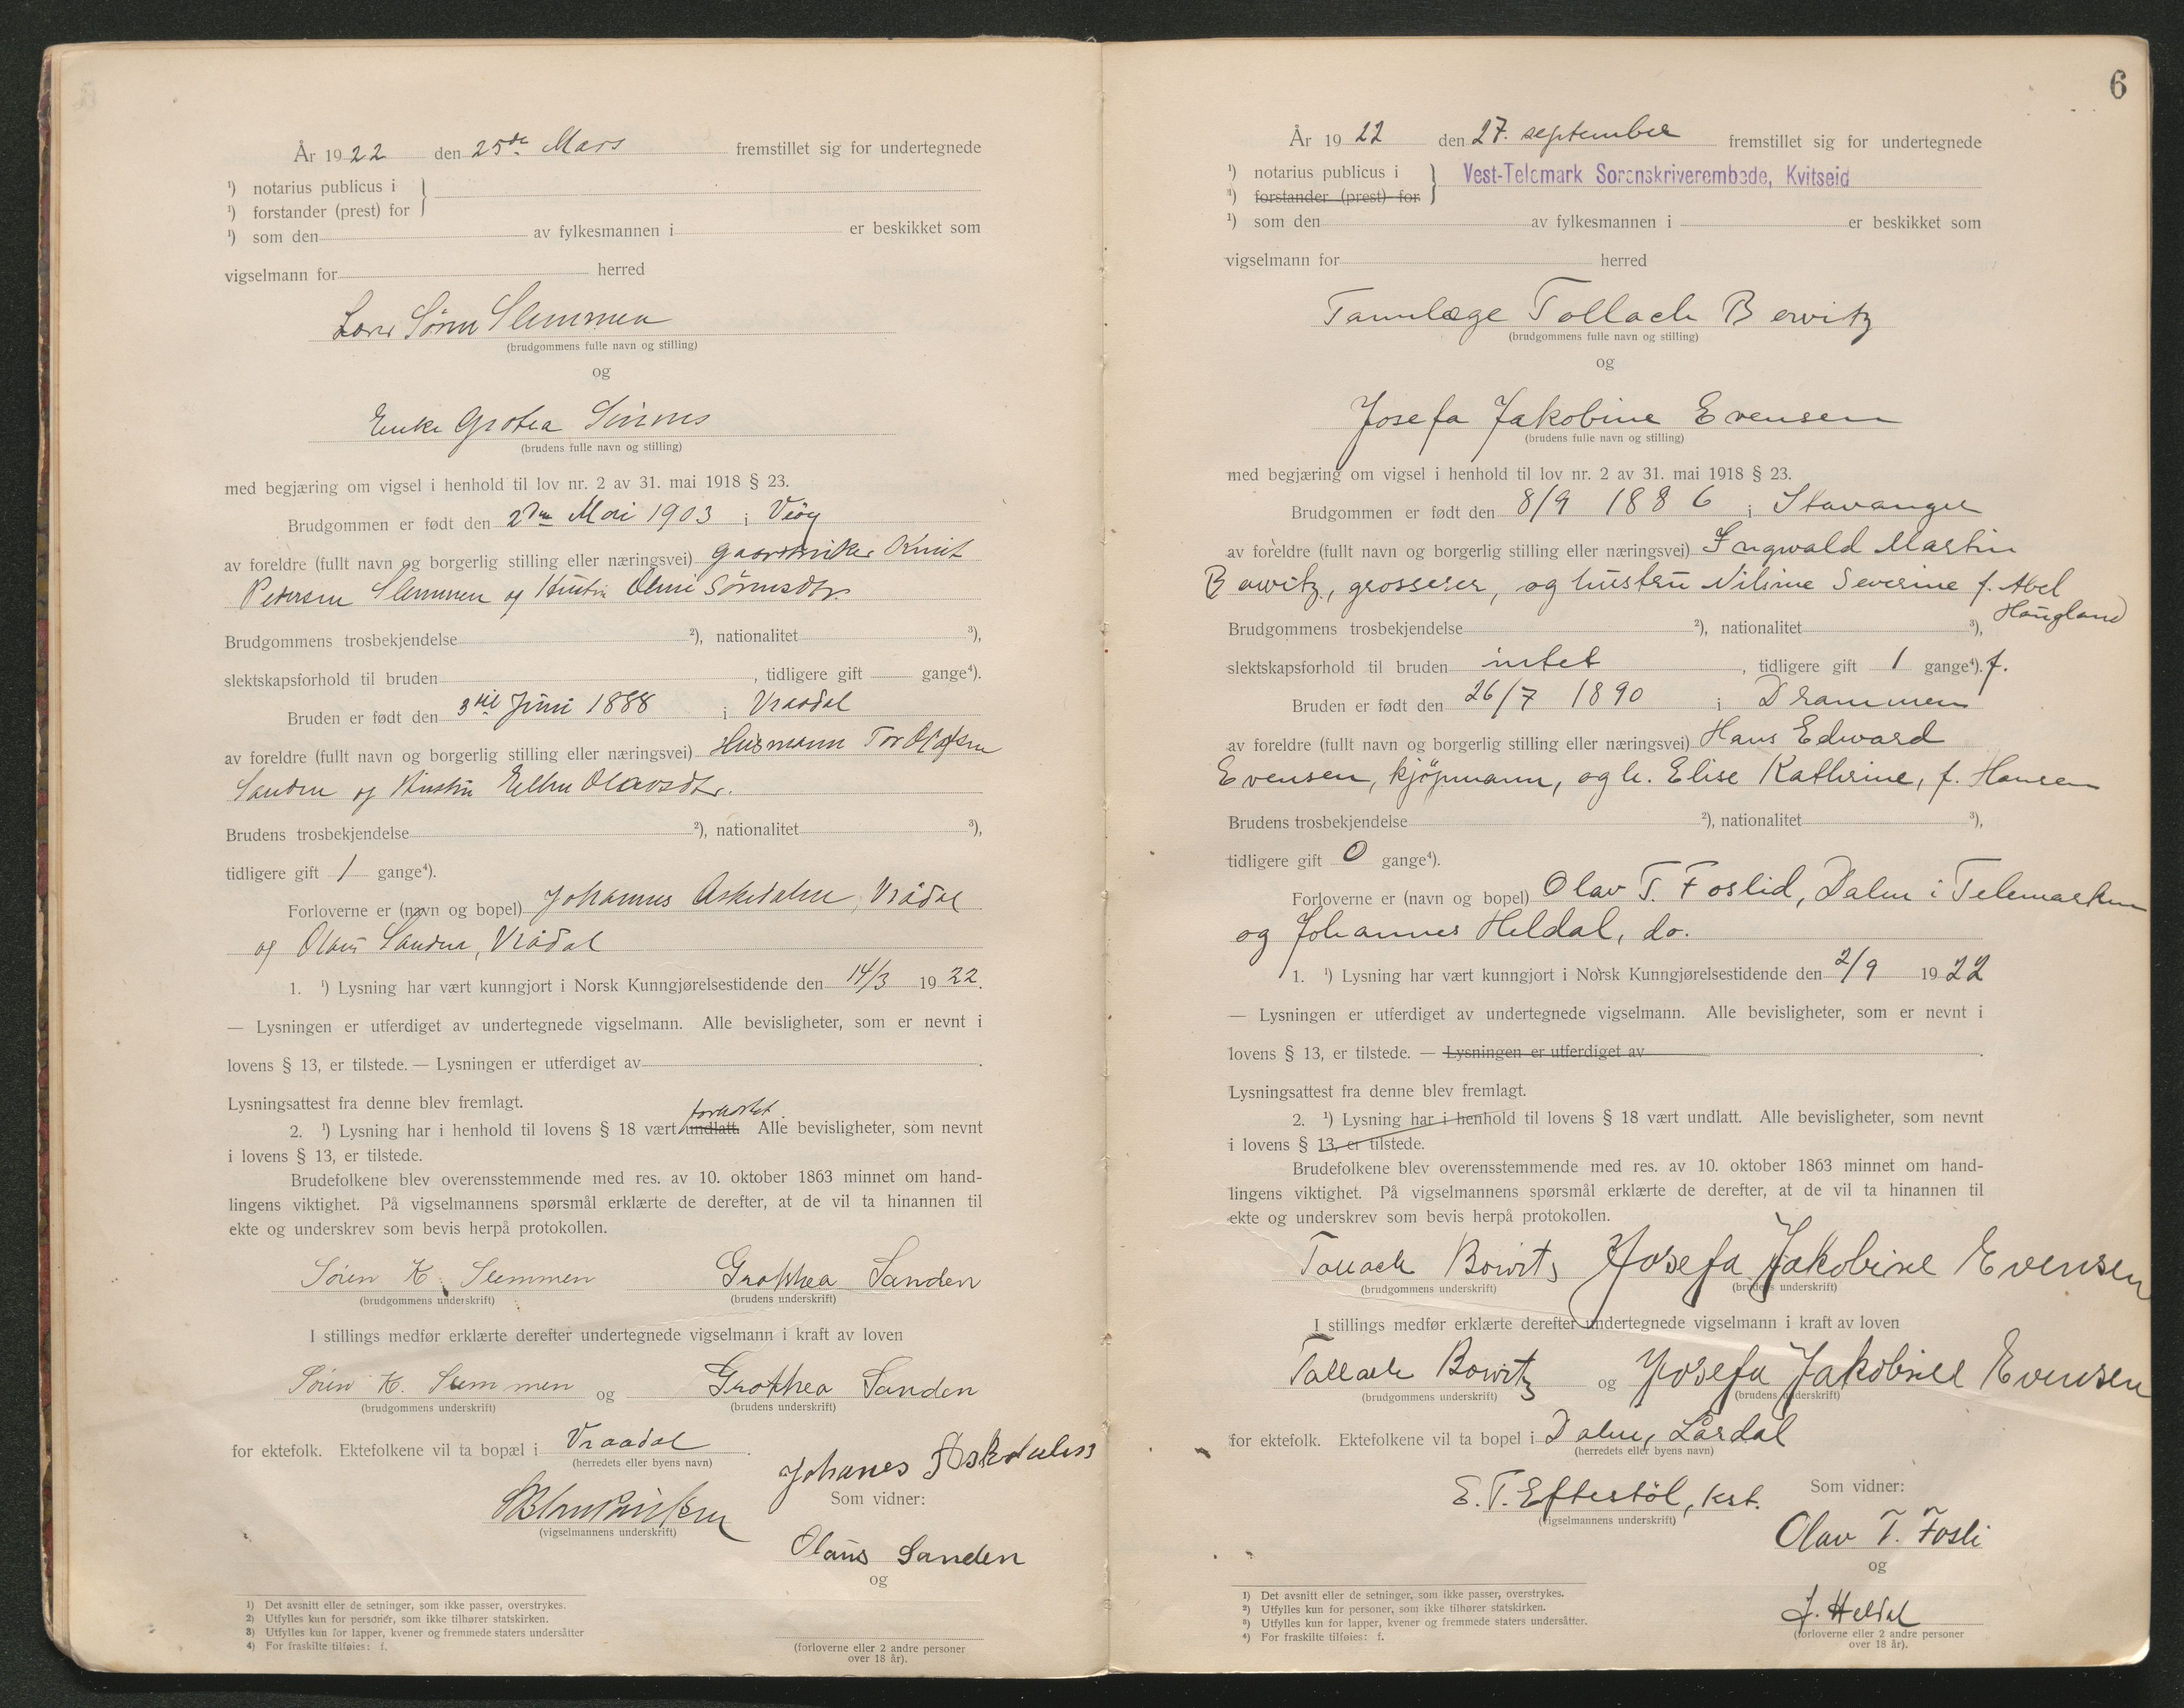 År 1922 den 25de Mars fremstillet sig for undertegnede
¹) notarius publicus i
¹) forstander (prest) for
¹) som den av fylkesmannen i er beskikket som
vigselmann for herred
Søren Slemmen
(brudgommens fulle navn og stilling)
og
Enke Grotea
(brudens fulle navn og stilling)
med begjæring om vigsel i henhold til lov nr. 2 av 31. mai 1918 § 23.
Brudgommen er født den Mai 1903 i
av foreldre (fullt navn og borgerlig stilling eller næringsvei) Knut
Petersen Slemmen og Hustru Sørensdtr.
Brudgommens trosbekjendelse ²), nationalitet ³),
slektskapsforhold til bruden , tidligere gift gange⁴).
Bruden er født den 3die Juni 1888 i Vraadal
av foreldre (fullt navn og borgerlig stilling eller næringsvei) Husmann Tor Olafsen
Sanden og Hustru Ellen Olavsdtr.
Brudens trosbekjendelse ²), nationalitet ³),
tidligere gift 1 gange⁴).
Forloverne er (navn og bopel) Johannes Askedalen, Vrådal
og Olaus Sanden, Vrådal
1. ¹) Lysning har vært kunngjort i Norsk Kunngjørelsestidende den 14/3 1922.
— Lysningen er utferdiget av undertegnede vigselmann. Alle bevisligheter, som er nevnt i
lovens § 13, er tilstede. — Lysningen er utferdiget av .
Lysningsattest fra denne blev fremlagt.
2. ¹) Lysning har i henhold til lovens § 18 vært undlatt. forkortet. Alle bevisligheter, som nevnt
i lovens § 13, er tilstede.
Brudefolkene blev overensstemmende med res. av 10. oktober 1863 minnet om hand-
lingens viktighet. På vigselmannens spørsmål erklærte de derefter, at de vil ta hinannen til
ekte og underskrev som bevis herpå protokollen.
Søren K. Slemmen Grothea Sanden
(brudgommens underskrift) (brudens underskrift)
I stillings medfør erklærte derefter undertegnede vigselmann i kraft av loven
Søren K. Slemmen og Grothea Sanden
(brudgommens underskrift) (brudens underskrift)
for ektefolk. Ektefolkene vil ta bopæl i Vraadal
(herredets eller byens navn)
Johanes Askedalen
Som vidner:
(vigselmannens underskrift)
Olaus Sanden
og
(forloverne eller 2 andre personer
over 18 år).
1) Det avsnitt eller de setninger, som ikke passer, overstrykes.
2) Utfylles kun for personer, som ikke tilhører statskirken.
3) Utfylles kun for lapper, kvener og fremmede staters undersåtter
4) For fraskilte tilføies: f.
6
År 1922 den 27. september fremstillet sig for undertegnede
¹) notarius publicus i Vest-Telemark Sorenskriverembede, Kvitseid
¹) forstander (prest) for
¹) som den av fylkesmannen i er beskikket som
vigselmann for herred
Tannlæge Tollach Bowitz
(brudgommens fulle navn og stilling)
og
Josefa Jakobine Evensen
(brudens fulle navn og stilling)
med begjæring om vigsel i henhold til lov nr. 2 av 31. mai 1918 § 23.
Brudgommen er født den 8/9 1886 i Stavanger
av foreldre (fullt navn og borgerlig stilling eller næringsvei) Ingwald Martin
Bowitz, grosserer, og hustru Nilsine Severine f. Abel
Haugland
Brudgommens trosbekjendelse ²), nationalitet ³),
slektskapsforhold til bruden intet , tidligere gift 1 gange⁴). f.
Bruden er født den 26/7 1890 i Drammen
av foreldre (fullt navn og borgerlig stilling eller næringsvei) Hans Edward
Evensen, kjøpmann, og h. Elise Kathrine, f. Hansen
Brudens trosbekjendelse ²), nationalitet ³),
tidligere gift 0 gange⁴).
Forloverne er (navn og bopel) Olav T. Foslid, Dalen i Telemarken
og Johannes Heldal, do.
1. ¹) Lysning har vært kunngjort i Norsk Kunngjørelsestidende den 2/9 1922
— Lysningen er utferdiget av undertegnede vigselmann. Alle bevisligheter, som er nevnt i
lovens § 13, er tilstede. — Lysningen er utferdiget av .
Lysningsattest fra denne blev fremlagt.
2. ¹) Lysning har i henhold til lovens § 18 vært undlatt. Alle bevisligheter, som nevnt
i lovens § 13, er tilstede.
Brudefolkene blev overensstemmende med res. av 10. oktober 1863 minnet om hand-
lingens viktighet. På vigselmannens spørsmål erklærte de derefter, at de vil ta hinannen til
ekte og underskrev som bevis herpå protokollen.
Tollach Bowitz Josefa Jakobine Evensen
(brudgommens underskrift) (brudens underskrift)
I stillings medfør erklærte derefter undertegnede vigselmann i kraft av loven
Tollach Bowitz og Josefa Jakobine Evensen
(brudgommens underskrift) (brudens underskrift)
for ektefolk. Ektefolkene vil ta bopel i Dalen, Lårdal
(herredets eller byens navn)
E. T. Eftestöl, kst. Som vidner:
(vigselmannens underskrift)
Olav T. Fosli
og
J. Heldal
(forloverne eller 2 andre personer
over 18 år).
1) Det avsnitt eller de setninger, som ikke passer, overstrykes.
2) Utfylles kun for personer, som ikke tilhører statskirken.
3) Utfylles kun for lapper, kvener og fremmede staters undersåtter.
4) For fraskilte tilføies: f.